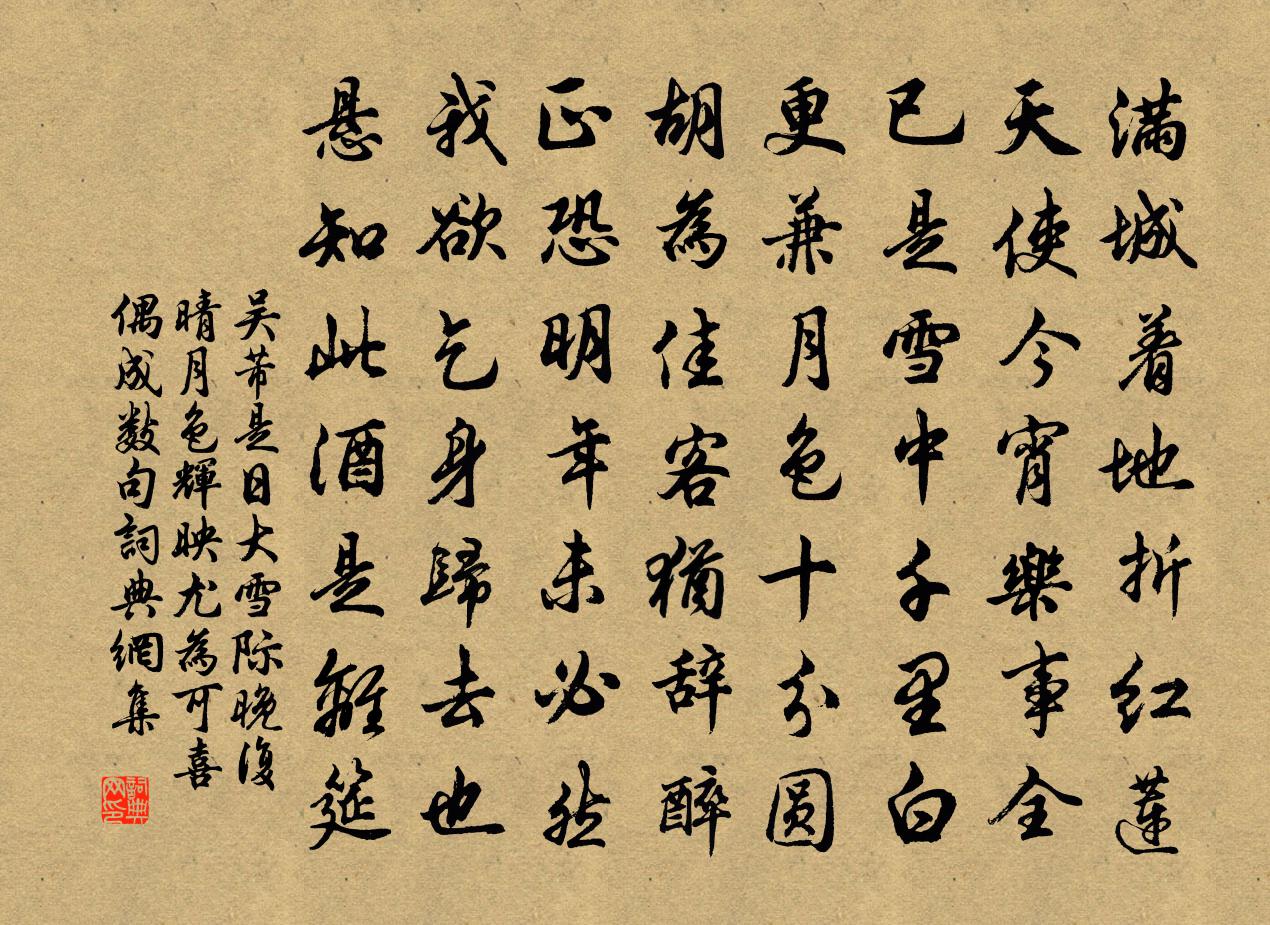 满城着地折红莲
天使今宵樂事全
已是雪中千里白
更兼月色十分圆
胡為佳客猶辞醉
正恐明年未必然
我欲乞身歸去也
悬知此酒是離筵
吴芾是日大雪际晚復
晴月色輝映尤為可喜
偶成数句詞典網集
詞典網印